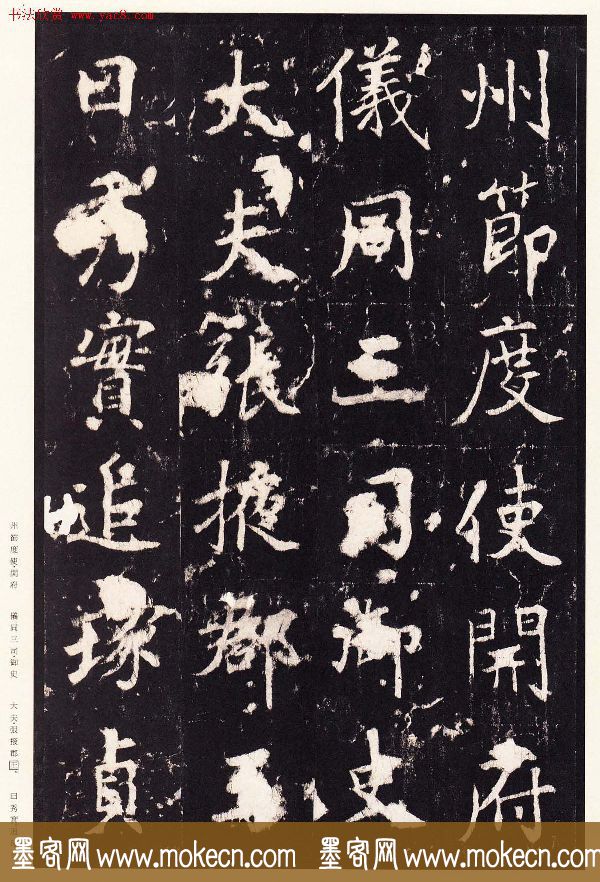 书法欣赏 www.yac8.com
州節度使開府
儀同三司御史
大夫張掖郡王
曰秀實追琢貞
州節度使開府 儀同三司御史 大夫張掖郡王 曰秀實追
墨客网 www.mokecn.com 墨客网 www.mokecn.com